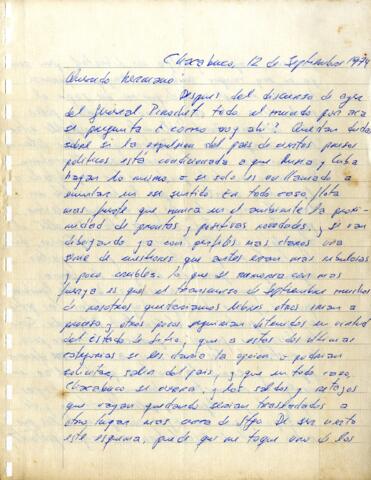 Chacabuco, 12 de Septiembre 1974
Querido hermano:
Después del discurso de ayer
del General Pinochet, todo el mundo por acá
se pregunta ¿ cómo voy ahí? Quedan dudas
sobre si la expulsión del país de ciertos presos
políticos está condicionada a que Rusia y Cuba
hagan lo mismo, o si sólo es un llamado a
en ese sentido. En todo caso, flota
más fuerte que nunca en el ambiente la proxi-
midad de prontas y positivas novedades, y se van
dibujando ya con perfiles más claros una
serie de cuestiones que antes eran más nebulosas
y poco creíbles. Lo que se menciona con más
fuerza es que en el transcurso de Septiembre muchos
de nosotros quedaríamos libres, otros irían a
proceso y otros pocos seguirían detenidos en virtud
del estado de sitio; que a estas dos últimas
categorías se les daría la opción o podrían
solicitar, salir del país, y que en todo caso,
Chacabuco se cierra, y los saldos y
que vayan quedando serían trasladados a
otro lugar más cerca de Stgo. De ser cierto
este esquema, puede que me toque uno de los